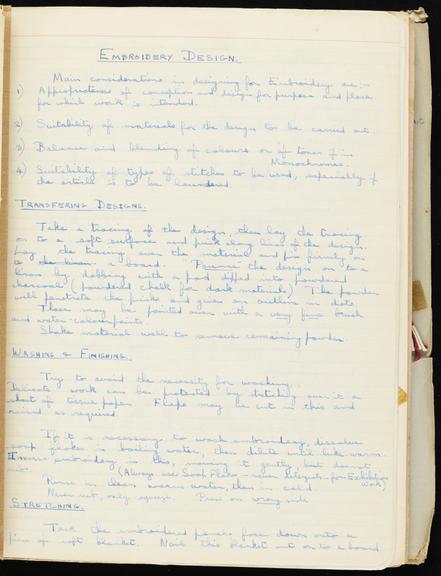 EMBROIDERY DESIGN.
Main considerations in designing for Embroidery are:-
1) Appropriateness of conception and design for purpose and place
for which work is intended.
2) Suitability of materials for the design to be carried out
3) Balance and blending of colours or of tones if in
Monochromes.
4) Suitability of types of stitches to be used, especially if
the article is to be laundered.
TRANSFERING DESIGNS.
Take a tracing of the design, then lay the tracing
on to a soft surface and prick along lines of the design.
Lay the tracing over the material and pin firmly on
to a board. Pounce the design on to a
linen by dabbing with a pad dipped into powdered
charcoal (powdered chalk for dark materials) The powder
will penetrate the pricks and give an outline in dots
These may be painted over with a very fine brush
and water-colour paints.
Shake material well to remove remaining powder.
WASHING & FINISHING.
Try to avoid the necessity for washing.
Delicate work can be protected by stretching over it a
sheet of tissue paper. Flaps may be cut in this and
raised as required.
If it is necessary to wash embroidery, dissolve
soap flakes in boiling water, then dilute until luke-warm.
Immerse embroidery in this, moving it gently but do not
rub. (Always use Soap Flakes - never detergents - for Exhibition
Work)
Rinse in clean, warm water, then in cold.
Never wring, only squeeze. Press on wrong side
STRETCHING.
Tack the embroidered panel face down onto a
piece of soft blanket. Nail this blanket out on to a board